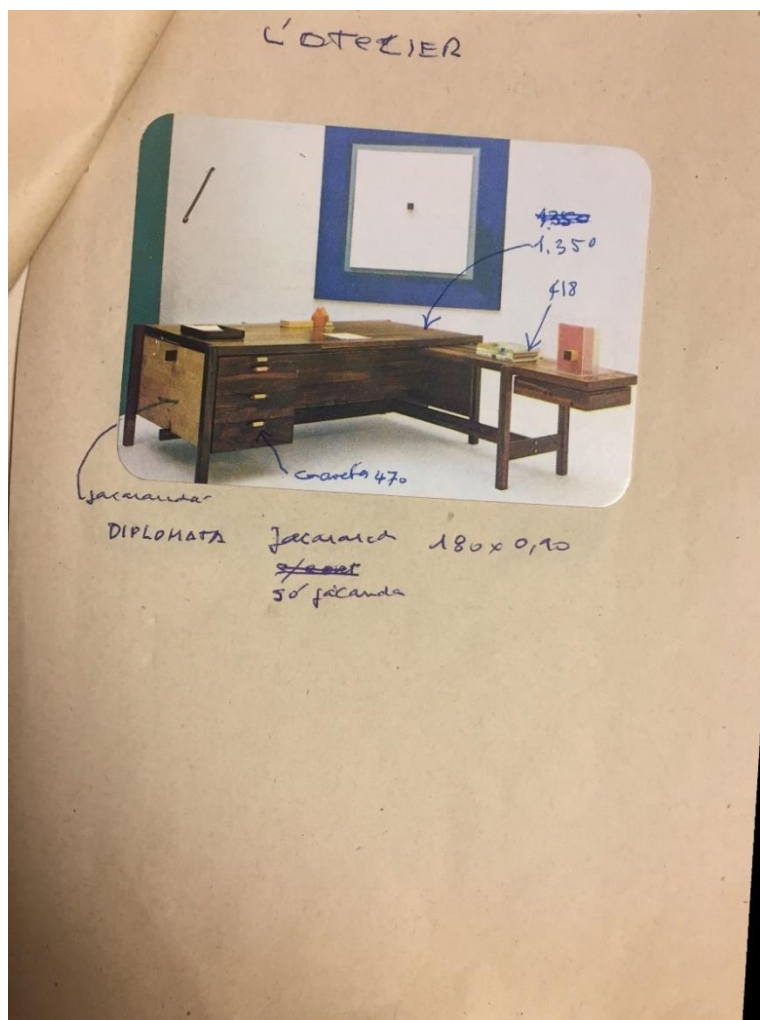 L'OTELIER
1.350
1.350
418
gaveta 470
jacarandá
DIPLOMATA Jacarandá 180 x 0,90
só jacanda